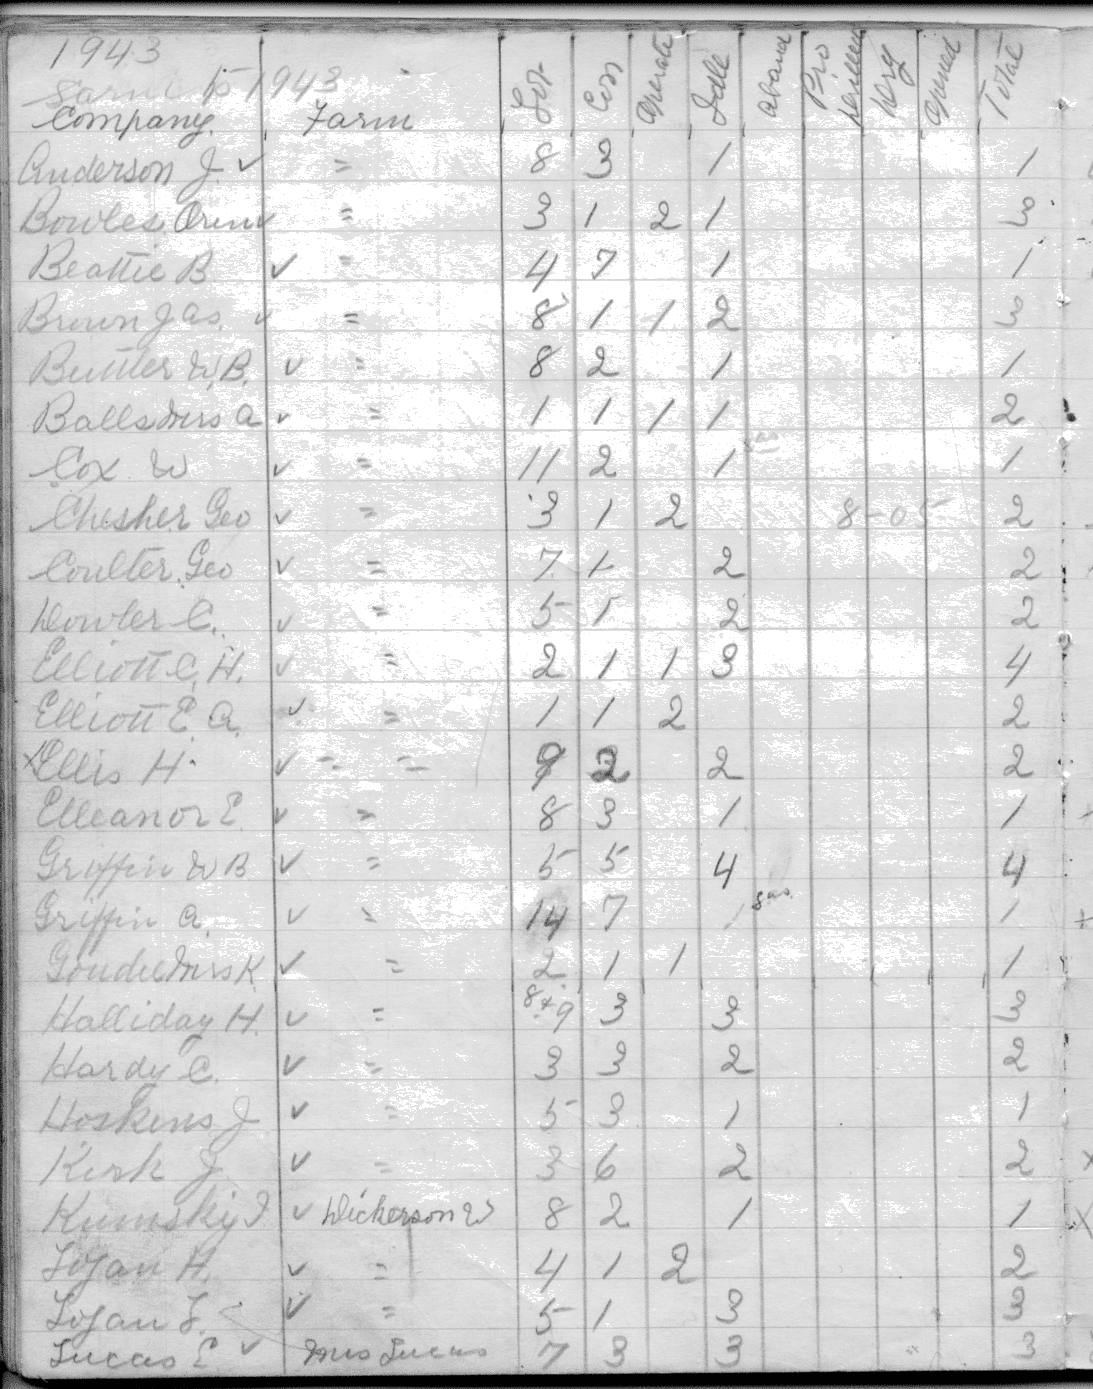 1943
Same to 1943
Company. Farm Lot Con Operate Idle Aband Pro Drilled Drg Opened Total
Anderson J. ✓ " 8 3 1 1
Bowles Orin ✓ " 3 1 2 1 3
Beattie B ✓ " 4 7 1 1
Brown Jas. ✓ " 8 1 1 2 3
Buttler W.B. ✓ " 8 2 1 1
Balls Mrs A ✓ " 1 1 1 1 2
Cox W ✓ " 11 2 1 1
Chesher Geo ✓ " 3 1 2 8-05 2
Coulter Geo ✓ " 7 1 2 2
Dowler C. ✓ " 5 1 2 2
Elliott C. H. ✓ " 2 1 1 3 4
Elliott E. A. ✓ " 1 1 2 2
x Ellis H ✓ " " 9 2 2 2
Elleanor E. ✓ " 8 3 1 1
Griffin W B ✓ " 5 5 4 4
Griffin A. ✓ " 14 7 1 gas. 1
Goudie Mrs K ✓ " 2 1 1 1
Halliday H. ✓ " 8+9 3 3 3
Hardy C. ✓ " 3 3 2 2
Hoskins J ✓ " 5 3 1 1
Kirk J. ✓ " 3 6 2 2
Kumsky I ✓ Dickerson W 8 2 1 1
Logan H. ✓ " 4 1 2 2
Logan F. ✓ " 5 1 3 3
Lucas E ✓ Mrs Lucas 7 3 3 3